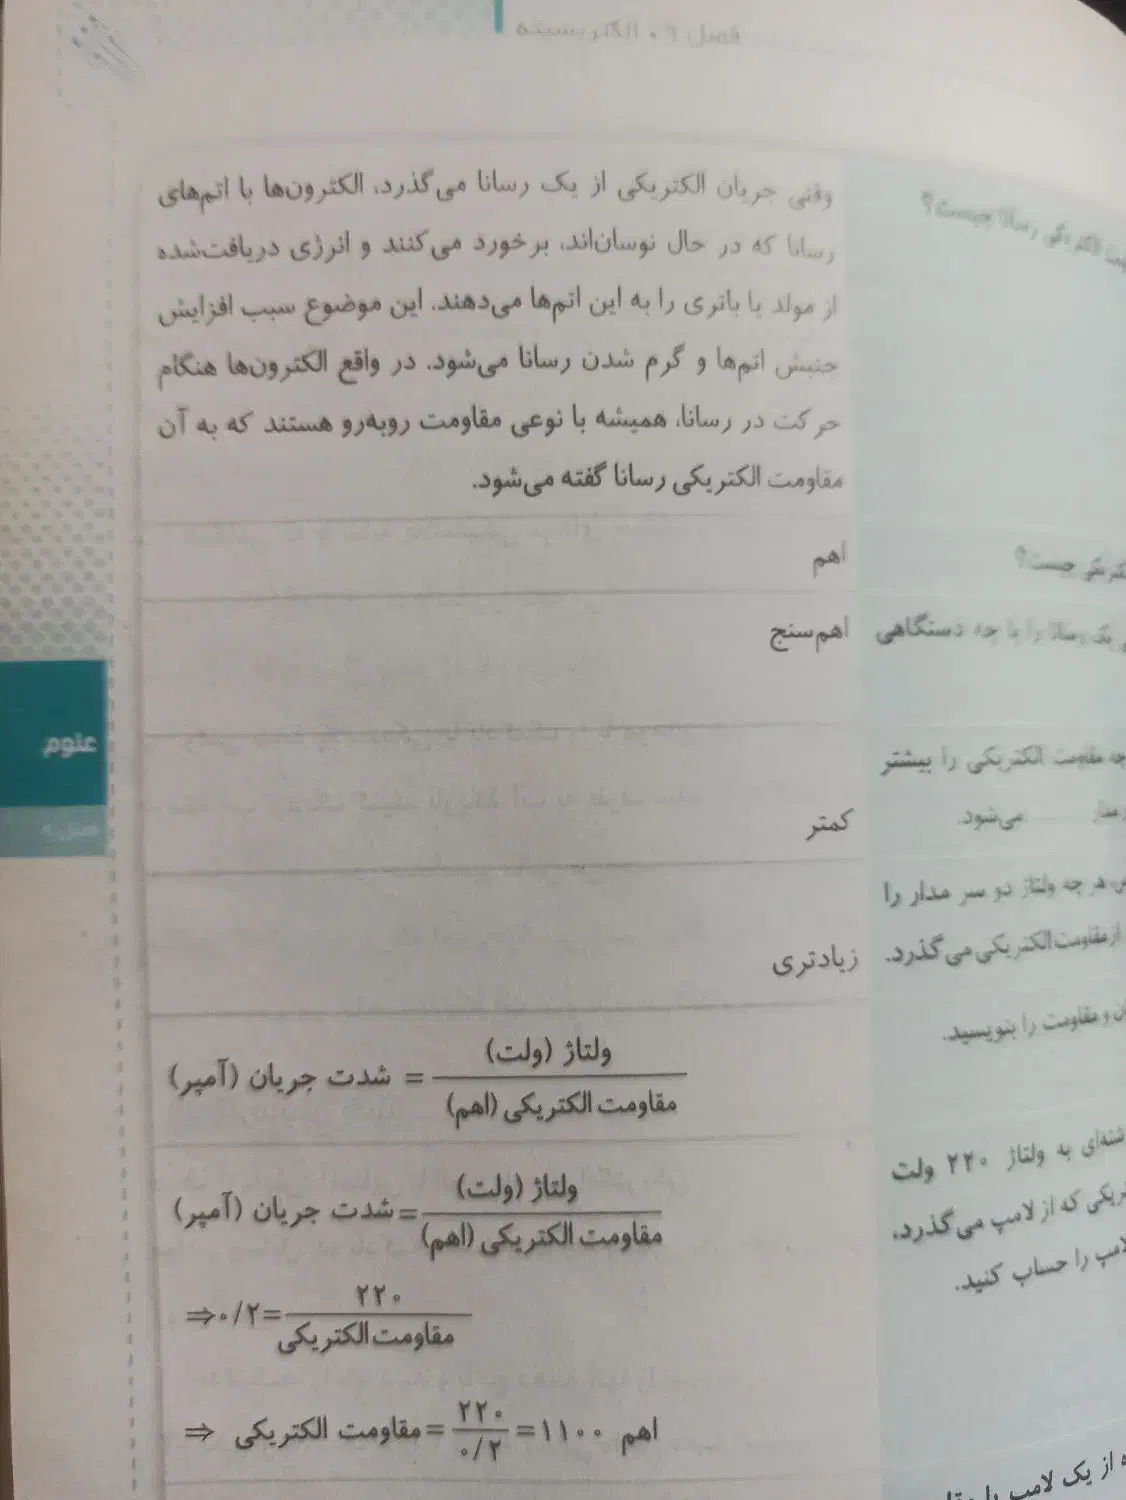 فصل ۹ • الکتریسیته
چیست؟
وقتی جریان الکتریکی از یک رسانا می‌گذرد، الکترون‌ها با اتم‌های
رسانا که در حال نوسان‌اند، برخورد می‌کنند و انرژی دریافت‌شده
از مولد یا باتری را به این اتم‌ها می‌دهند. این موضوع سبب افزایش
جنبش اتم‌ها و گرم شدن رسانا می‌شود. در واقع الکترون‌ها هنگام
حرکت در رسانا، همیشه با نوعی مقاومت روبه‌رو هستند که به آن
مقاومت الکتریکی رسانا گفته می‌شود.
چیست؟
اهم
یک رسانا را با چه دستگاهی
اهم‌سنج
چه مقاومت الکتریکی را بیشتر
می‌شود.
کمتر
هر چه ولتاژ دو سر مدار را
از مقاومت الکتریکی می‌گذرد.
زیادتری
و مقاومت را بنویسید.
ولتاژ (ولت)
شدت جریان (آمپر) =
مقاومت الکتریکی (اهم)
به ولتاژ ۲۲۰ ولت
که از لامپ می‌گذرد،
لامپ را حساب کنید.
ولتاژ (ولت)
شدت جریان (آمپر) =
مقاومت الکتریکی (اهم)
۲۲۰
⇒ ۰/۲ =
مقاومت الکتریکی
۲۲۰
⇒ مقاومت الکتریکی = = ۱۱۰۰ اهم
۰/۲
از یک لامپ با
علوم
فصل ۹